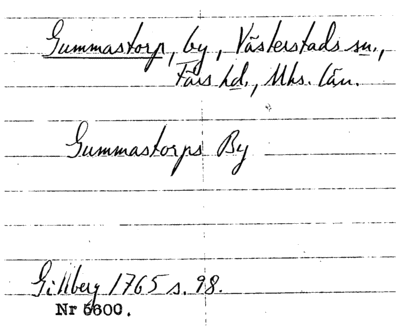 Gummastorp, by, Västerstads sn.,
Färs hd., Mhs. län.
Gummastorps By
Gillberg 1765 s. 98.
Nr 5600.